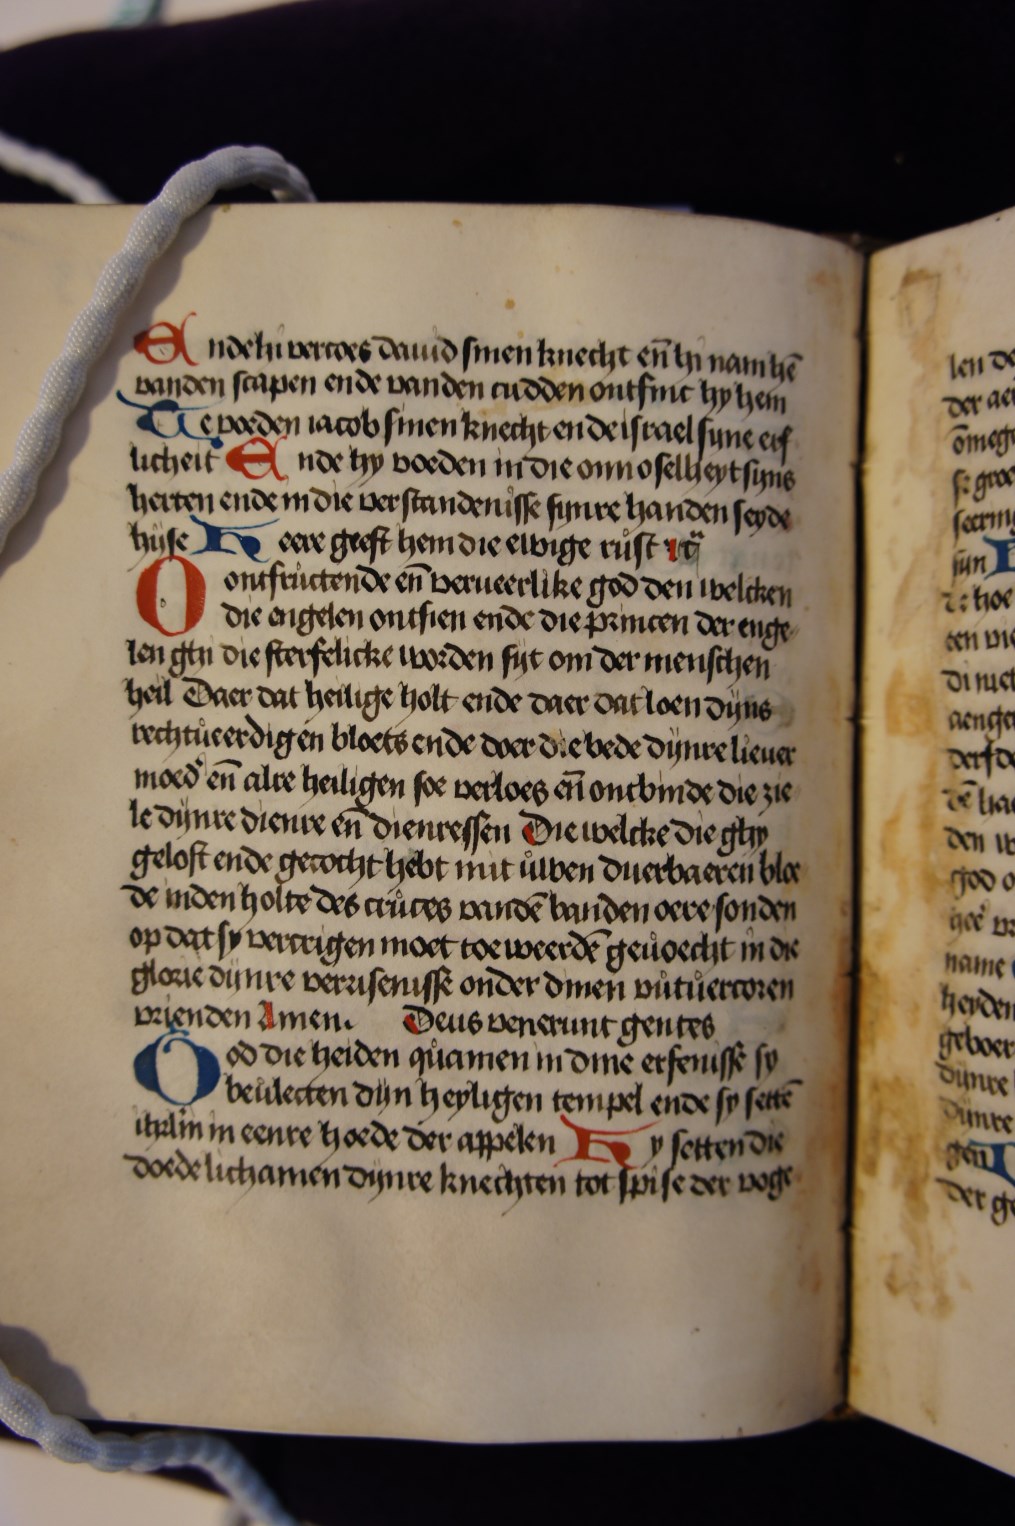 Ende hi vercoes dauid sinen knecht en̄ hi nam hē
vanden scapen ende vanden cudden ontfinc hy hem
Te voeden iacob sinen knecht ende israel syne erf
licheit Ende hy voeden in die onnoselheyt syns
herten ende in die verstandenisse synre handen seyde
hůse Heere geeft hem die ewige růst
O ontfrůctende en̄ verueerlike god den welcken
die engelen ontsien ende die princen der enge
len ghi die sterfelicke worden syt om der menschen
heil Daer dat heilige holt ende daer dat loen dijns
rechtůeerdigen bloets ende doer die bede dijnre lieuer
moed' en̄ alre heiligen soe verloes en̄ ontbinde die zie
le dijnre dienre en̄ dienressen Die welcke die ghy
gelost ende gecocht hebt mit ůwen duerbaeren bloe
de inden holte des crůces vandē banden oere sonden
op dat sy vercrigen moet toe weerdē geůoecht in die
glorie dijnre verrisenisse onder dinen ůutůercoren
vrienden Amen. Deus venerunt gentes
God die heiden qůamen in dine erfenisse sy
beůlecten dijn heyligen tempel ende sy settē
ihrlm in eenre hoede der appelen Hy setten die
doede lichamen dijnre knechten tot spise der voge
len de
der aer
ōmege
groe
hoe
di niet
aenge
den
god o
name
heyden
geboer
dijnre
dijnre
gen
der ge